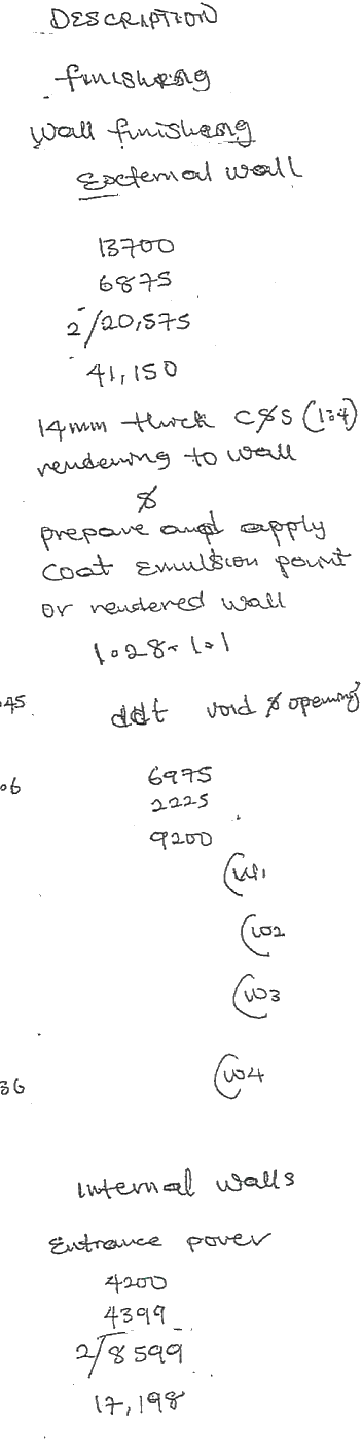 DESCRIPTION
finisheng
Wall finisheng
External wall
13700
6875
2/20,575
41,150
14mm thick C&S (1:4)
rendering to wall
&
prepare and apply
coat Emulsion paint
or rendered wall
1.28.1.1
45
ddt void & opening
06
6975
2225
9200
(W1
(W2
(W3
36
(W4
Internal walls
Entrance
4200
4399
2/8599
17,198